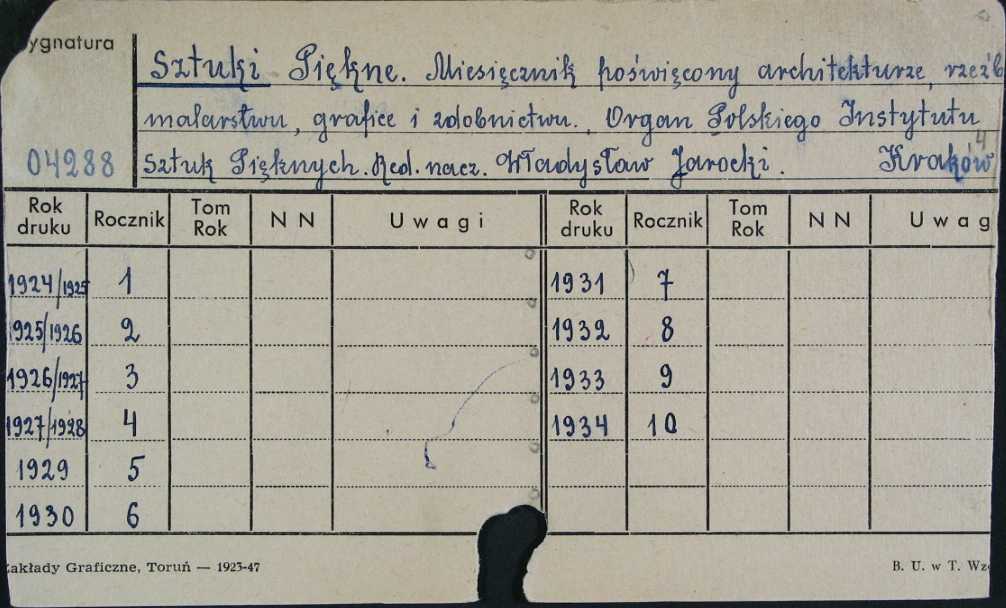 ygnatura
Sztuki Piękne. Miesięcznik poświęcony architekturze, rzeźb
malarstwu, grafice i zdobnictwu. Organ Polskiego Instytutu
04288 Sztuk Pięknych. Red. nacz. Władysław Jarocki. Kraków
Rok druku Rocznik Tom Rok N N Uwagi Rok druku Rocznik Tom Rok N N Uwag
1924/1925 1 1931 7
1925/1926 2 1932 8
1926/1927 3 1933 9
1927/1928 4 1934 10
1929 5
1930 6
akłady Graficzne, Toruń — 1923-47 B. U. w T. Wz